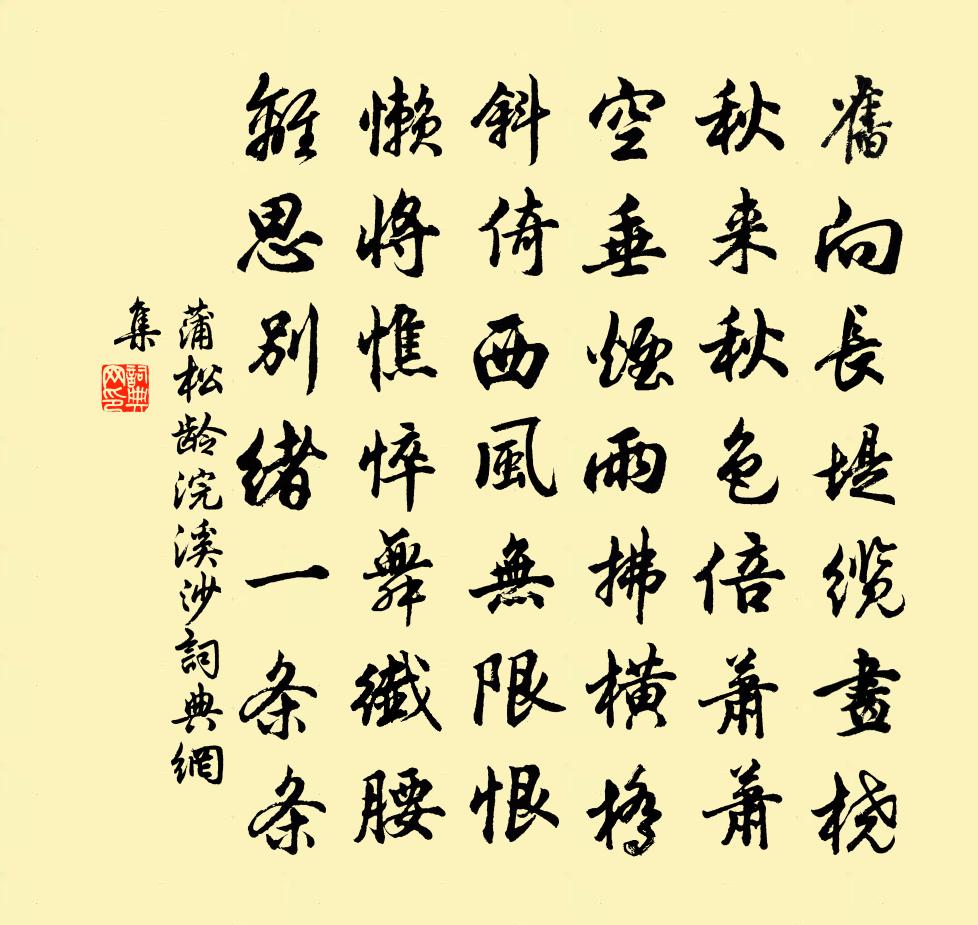 舊向長堤纜畫桡
秋来秋色倍萧萧
空垂煙雨拂横橋
斜倚西風無限恨
懶将憔悴舞纖腰
離思别緒一条条
蒲松龄浣溪沙詞典網
集
詞典网印